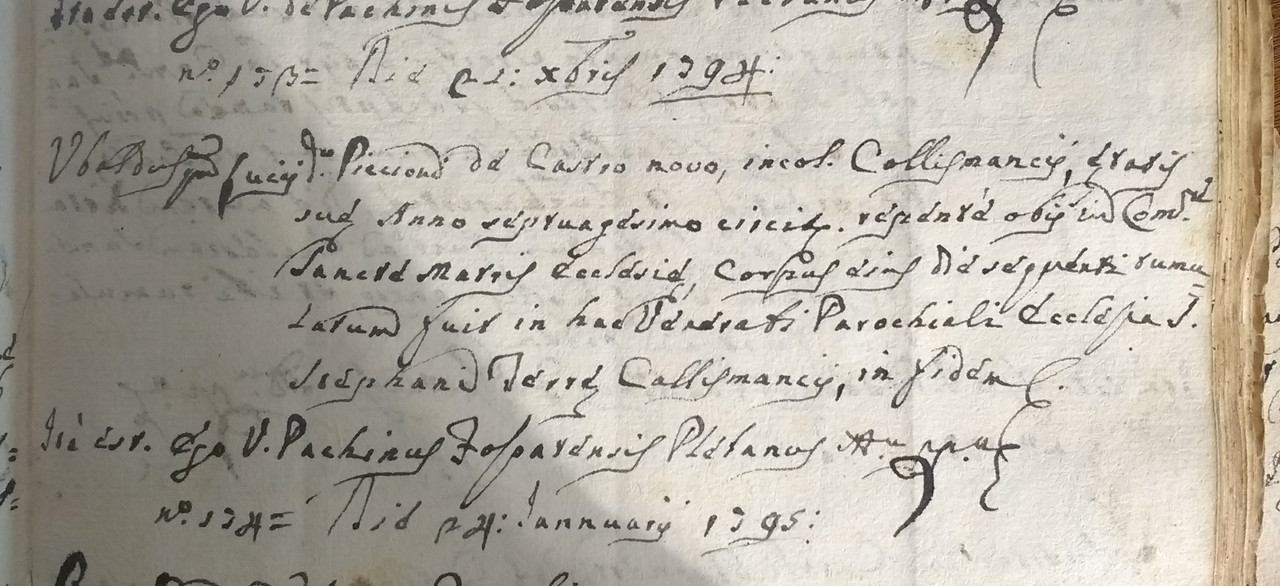 Ita est. Ego V. de Pachinis Fosfatensis
n.º 173 = Die 21: Xbris 1794:
Ubaldus qm Lucij Piccioni de Castro novo, incol. Collismancij, ętatis
suę Anno septuagesimo circit. repente obijt in Com.
Sanctę Matris Ecclesię, Corpus eius die sequenti tumu
latum fuit in hac Venerabi Parochiali Ecclesia S.
Stephani Terrę Collismancij, in fidem
Ita est. Ego V. Pachinus Plebanus
n.º 174 = Die 24: Jannuarij 1795: